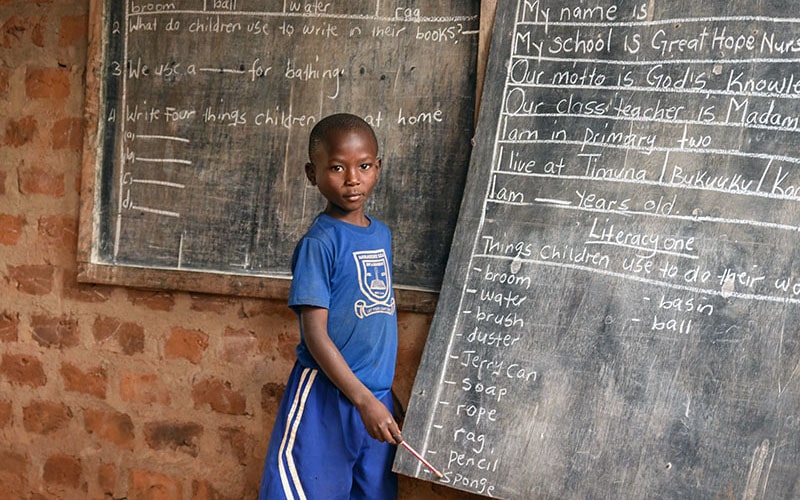 broom ball water rag
2 What do children use to write in their books?
3 We use a — for bathing.
4 Write Four things children at home
a,
b,
c,
d,
My name is
My school is Great Hope Nurs
Our motto is God is Knowle
Our class teacher is Madam
I am in primary two
I live at Timuna / Bukuuku / Ka
I am — years old.
Literacy one
Things children use to do their wo
- broom
- water
- brush
- duster
- Jerry Can
- soap
- rope
- rag
- pencil
- sponge
- basin
- ball